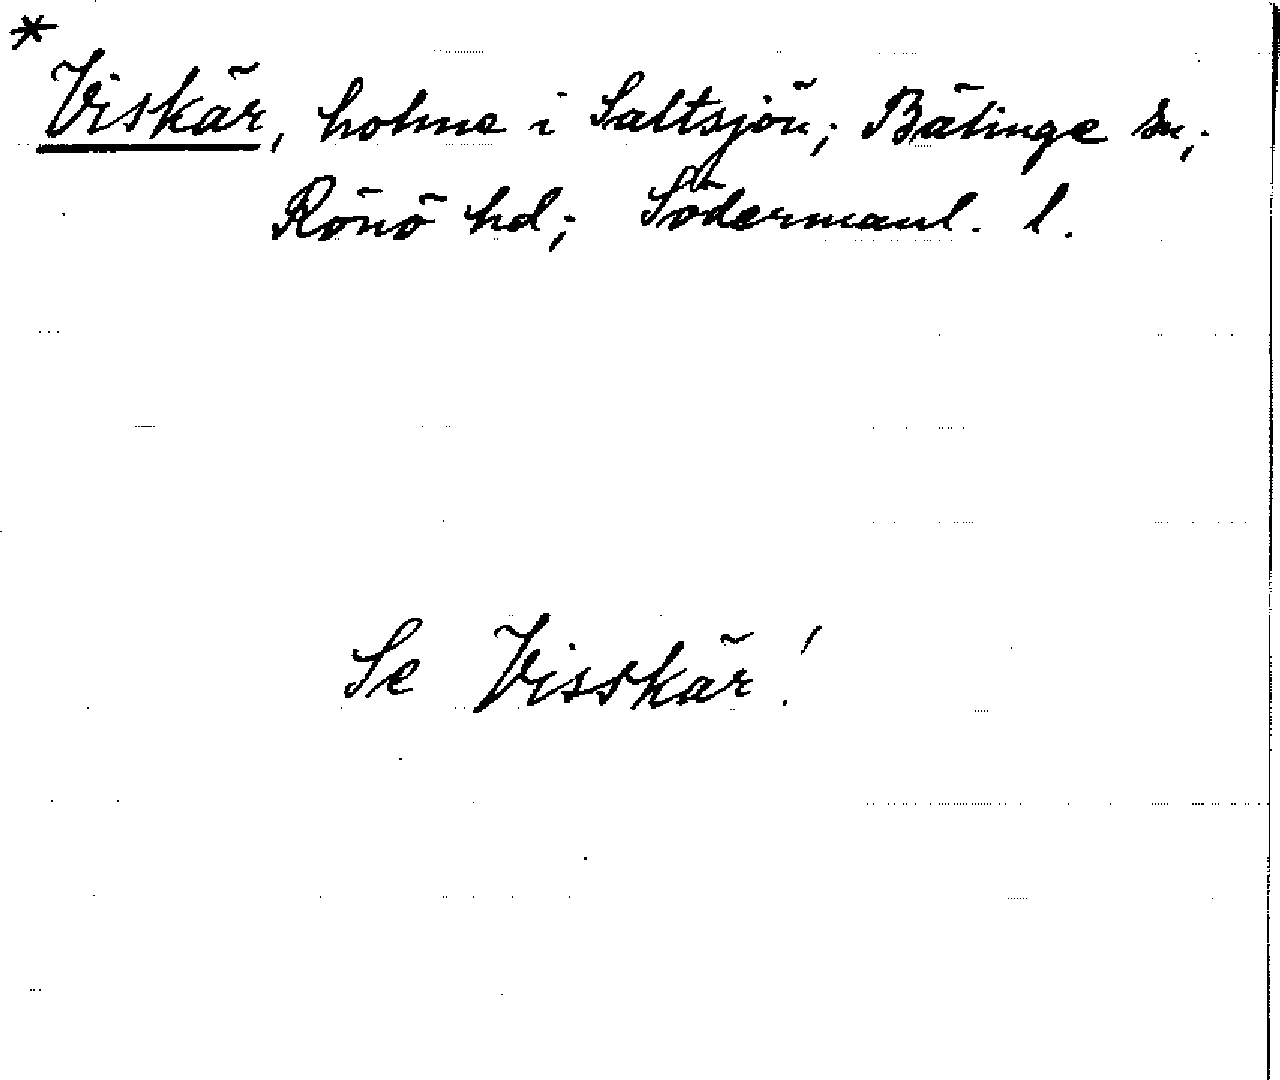 * Viskär, holme i Saltsjön; Bälinge sn;
Rönö hd; Södermanl. l.
Se Visskär!